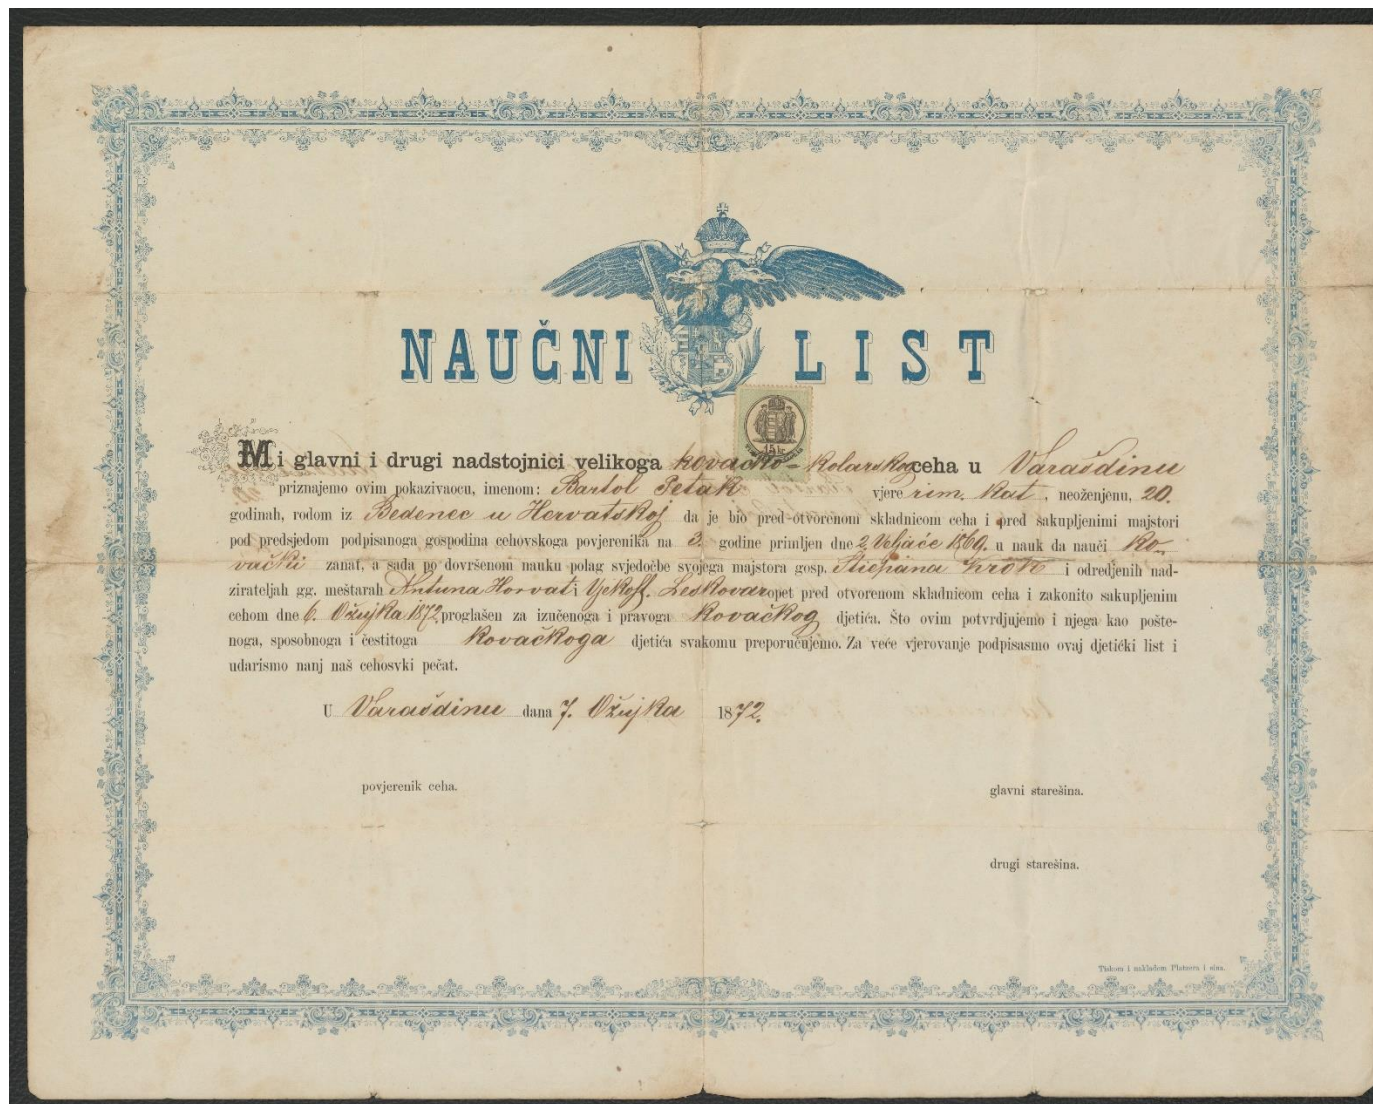 NAUČNI LIST
15 kr
Mi glavni i drugi nadstojnici velikoga kovačko-kolarskog ceha u Varaždinu
priznajemo ovim pokazivaocu, imenom: Bartol Petak vjere rim. kat, neoženjenu, 20.
godinah, rodom iz Bedenec u Hervatskoj da je bio pred otvorenom skladnicom ceha i pred sakupljenimi majstori
pod predsjedom podpisanoga gospodina cehovskoga povjerenika na 3. godine primljen dne 2 Veljače 1869. u nauk da nauči ko-
vački zanat, a sada po dovršenom nauku polag svjedočbe svojega majstora gosp. Stiepana Krok i odredjenih nad-
zirateljah gg. meštarah Antuna Horvat i Vjekosl. Leskovar opet pred otvorenom skladnicom ceha i zakonito sakupljenim
cehom dne 6. Ožujka 1872 proglašen za izučenoga i pravoga kovačkog djetića. Što ovim potvrdjujemo i njega kao pošte-
noga, sposobnoga i čestitoga kovačkoga djetića svakomu preporučujemo. Za veće vjerovanje podpisasmo ovaj djetićki list i
udarismo nanj naš cehosvki pečat.
U Varaždinu dana 7. Ožujka 1872.
povjerenik ceha.
glavni starešina.
drugi starešina.
Tiskom i nakladom Platzera i sina.